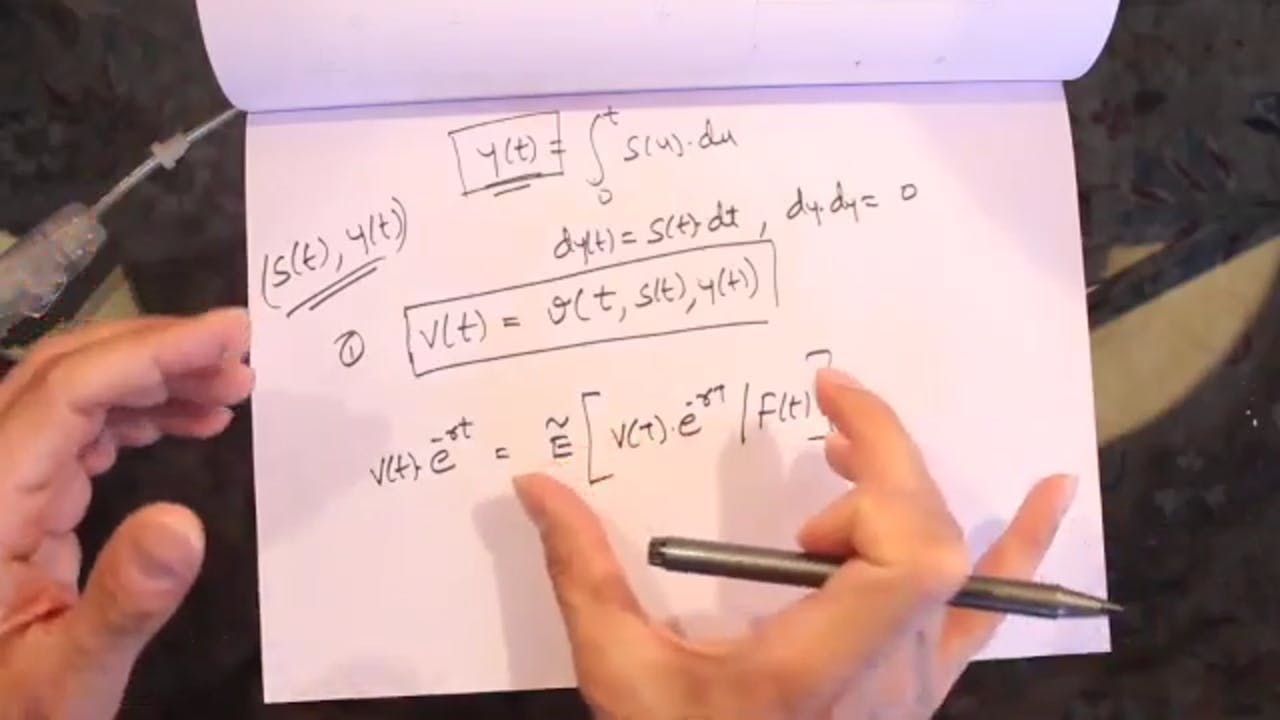 y(t) = ∫₀ᵗ S(u)·du
(S(t), y(t))
dy(t) = S(t)·dt , dy·dy = 0
① V(t) = ϑ(t, S(t), y(t))
V(t)·e^{-rt} = Ẽ[V(T)·e^{-rT} | F(t)]